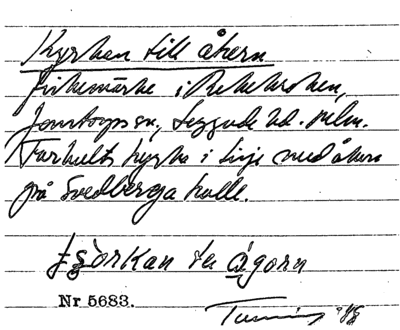 Kyrkan till åkern
fiskemärke i Rekekroken,
Jonstorps sn, Luggude hd. Mlm.
Farhults kyrka i linje med åkern
på Svedberga kulle.
Nr 5683.